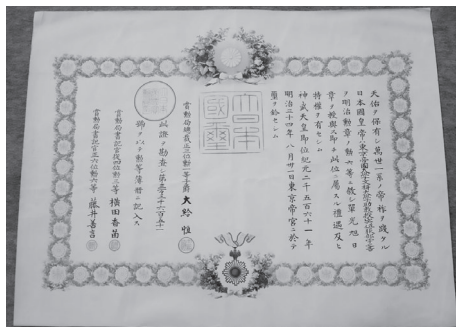 天佑ヲ保有シ萬世一系ノ帝祚ヲ踐タル
日本國皇帝ハ東京帝國大學文科大學
ヲ明治勲章ノ勲六等ニ敍シ單光旭日
章ヲ授與ス即チ此位ニ屬スル禮遇及ヒ
特權ヲ有セシム
神武天皇即位紀元二千五百六十一年
明治三十四年八月卅一日東京帝宮ニ於テ
璽ヲ鈐セシム
大日本
國璽
賞勲局總裁正三位勲一等子爵大給恒
此證ヲ勘査シ第
號ヲ以テ勲等簿册ニ記入ス
賞勲局書記官從四位勲三等横田香苗
賞勲局書記官正六位勲六等藤井善言